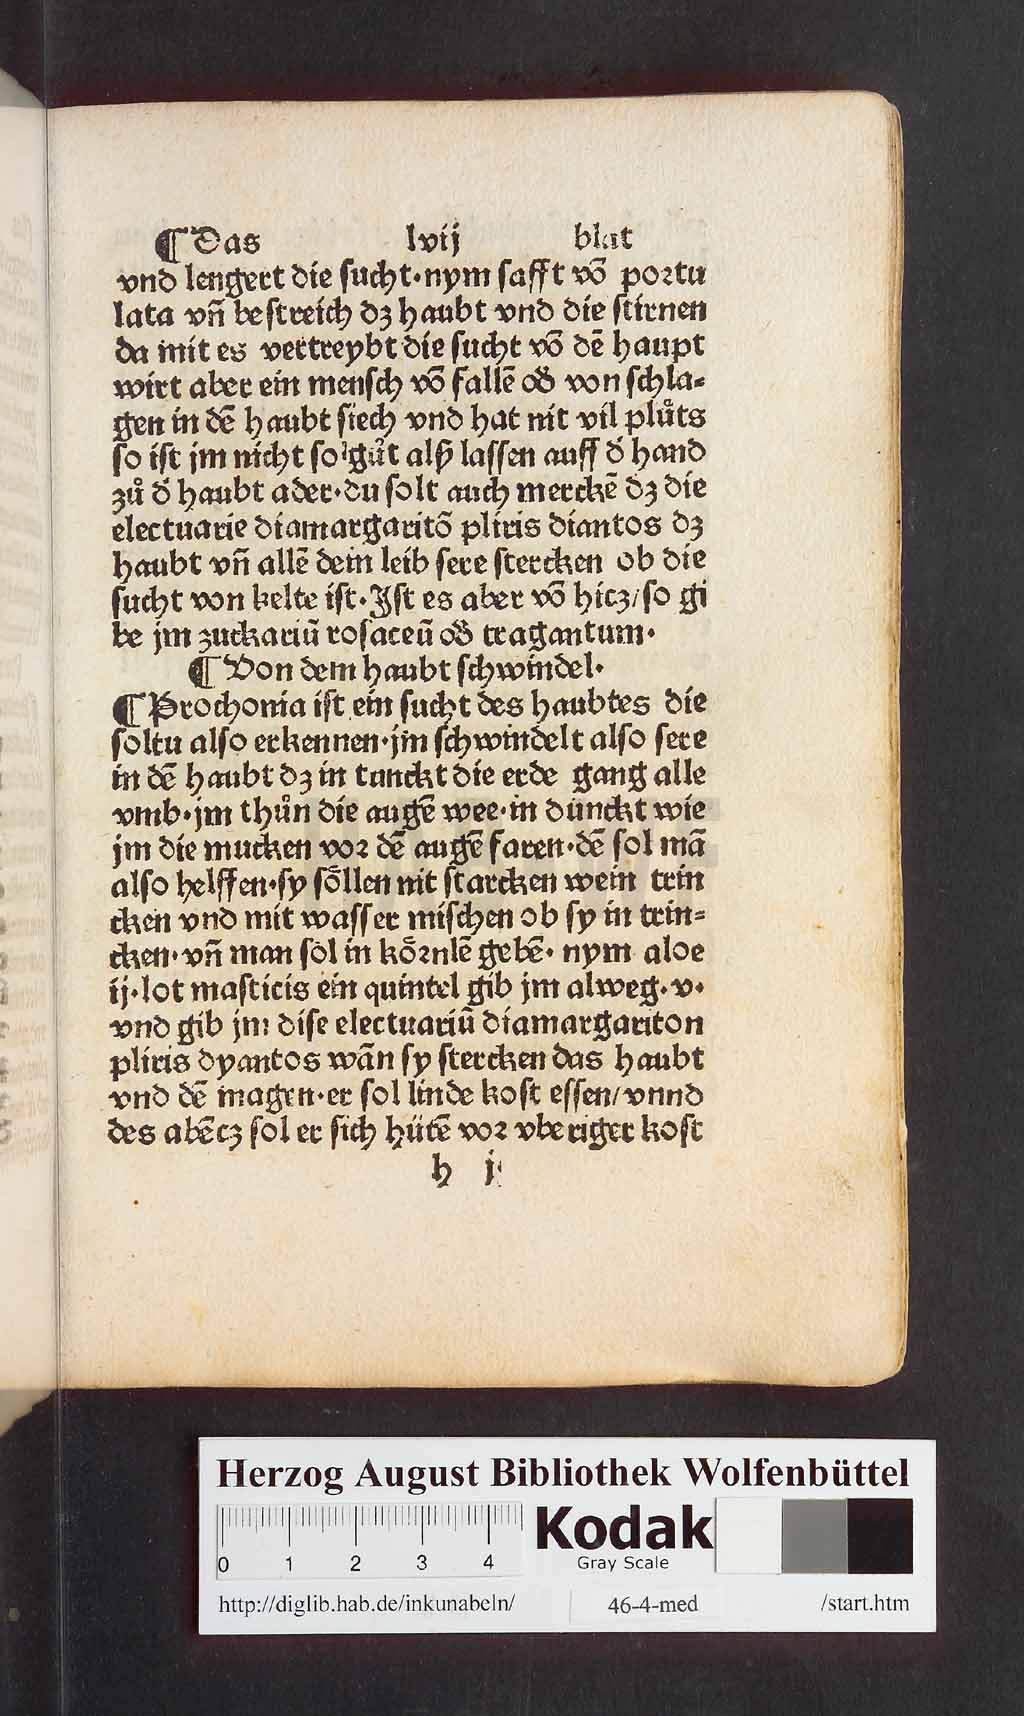 ¶ Das lvij blat
vnd lengert die sucht·nym safft võ portu
lata vñ bestreich dz haubt vnd die stirnen
da mit es vertreybt die sucht võ dẽ haupt
wirt aber ein mensch võ fallẽ od̕ von schla-
gen in dẽ haubt siech vnd hat nit vil plůts
so ist jm nicht so gůt alß lassen auff d̕ hand
zů d̕ haubt ader·du solt auch merckẽ dz die
electuarie diamargaritõ pliris diantos dz
haubt vñ allẽ dein leib sere stercken ob die
sucht von kelte ist·Ist es aber võ hicz/so gi
be jm zuckariũ rosaceũ od̕ tragantum·
¶ Von dem haubt schwindel·
¶ Prochonia ist ein sucht des haubtes die
soltu also erkennen·jm schwindelt also sere
in dẽ haubt dz in tunckt die erde gang alle
vmb·jm thůn die augẽ wee·in dunckt wie
jm die mucken vor dẽ augẽ faren·dẽ sol mã
also helffen·sy soͤllen nit starcken wein trin
cken vnd mit wasser mischen ob sy in trin=
cken·vñ man sol in koͤrnlẽ gebẽ· nym aloe
ij·lot masticis ein quintel gib jm alweg·v·
vnd gib jm dise electuariũ diamargariton
pliris dyantos wãn sy stercken das haubt
vnd dẽ magen·er sol linde kost essen/vnnd
des abẽcz sol er sich hütẽ vor vberiger kost
h j
Herzog August Bibliothek Wolfenbüttel
0 1 2 3 4
Kodak
Gray Scale
http://diglib.hab.de/inkunabeln/ 46-4-med /start.htm